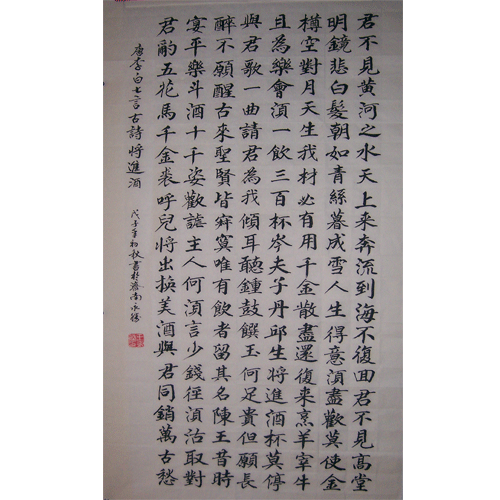 君不見黃河之水天上来奔流到海不復回君不見高堂
明鏡悲白髮朝如青絲暮成雪人生得意湏盡歡莫使金
樽空對月天生我材必有用千金散盡還復来烹羊宰牛
且為樂會湏一飲三百杯岑夫子丹邱生將進酒杯莫停
與君歌一曲請君為我傾耳聽鍾鼓饌玉何足貴但願長
醉不願醒古來聖賢皆寂寞唯有飲者留其名陳王昔時
宴平樂斗酒十千姿歡謔主人何湏言少錢徑湏沽取對
君酌五花馬千金裘呼兒將出換美酒與君同銷萬古愁
唐李白七言古詩將進酒 戊子年初秋書於濟南